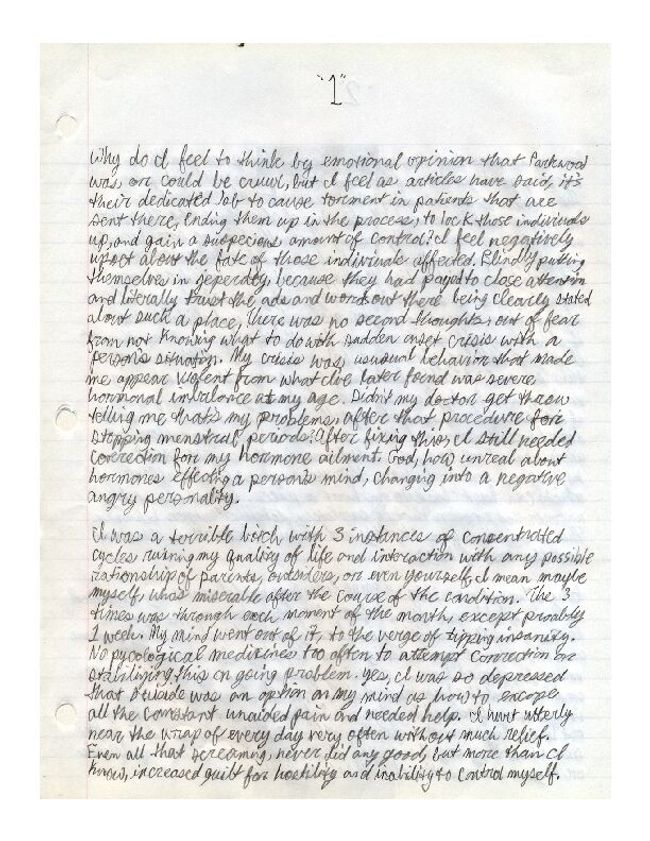 "1"
Why do I feel to think by emotional opinion that Parkwood
was or could be cruwl, but I feel as articles have said, it's
their dedicated Job to cause torment in patients that are
sent there, Ending them up in the process, to lock those indiviuals
up, and gain a suspecious amount of control? I feel negatively
upset about the fate of those indiviuals affected. Blindly putting
themselves in jeperdety, because they had payed to close attention
and literally trust the ads and words out there being clearly stated
about such a place, There was no second thoughts, out of fear
from not knowing what to do with sudden onset crisis with a
person's situation. My crisis was, usuual behavior that made
me appear violent from what I've later found was severe
hormonal imbalance at my age. Didn't my doctor get threw
telling me that's my problems, after that procedure for
stopping menstrual periods? After fixing this, I still needed
correction for my hormone ailment. God, how unreal about
hormones effecting a person's mind, changing into a negative
angry personality.
I was a terrible bitch with 3 instances of consentrated
cycles ruining my quality of life and interaction with any possible
rationship of parents, outsiders, or even yourself, I mean maybe
myself, who's miserable after the course of the condition. The 3
times was through each moment of the month, except proably
1 week. My mind went out of it, to the verge of tipping insanity.
No pycological medicines too often to attempt correction or
stabilizing this on going problem. Yes, I was so depressed
that was an option on my mind as how to excape
all the constant unaided pain and needed help. I hunt utterly
near the wrap of every day very often without much relief.
Even all that screaming, never did any good, but more than I
know, increased guilt for hostility and inability to control myself.